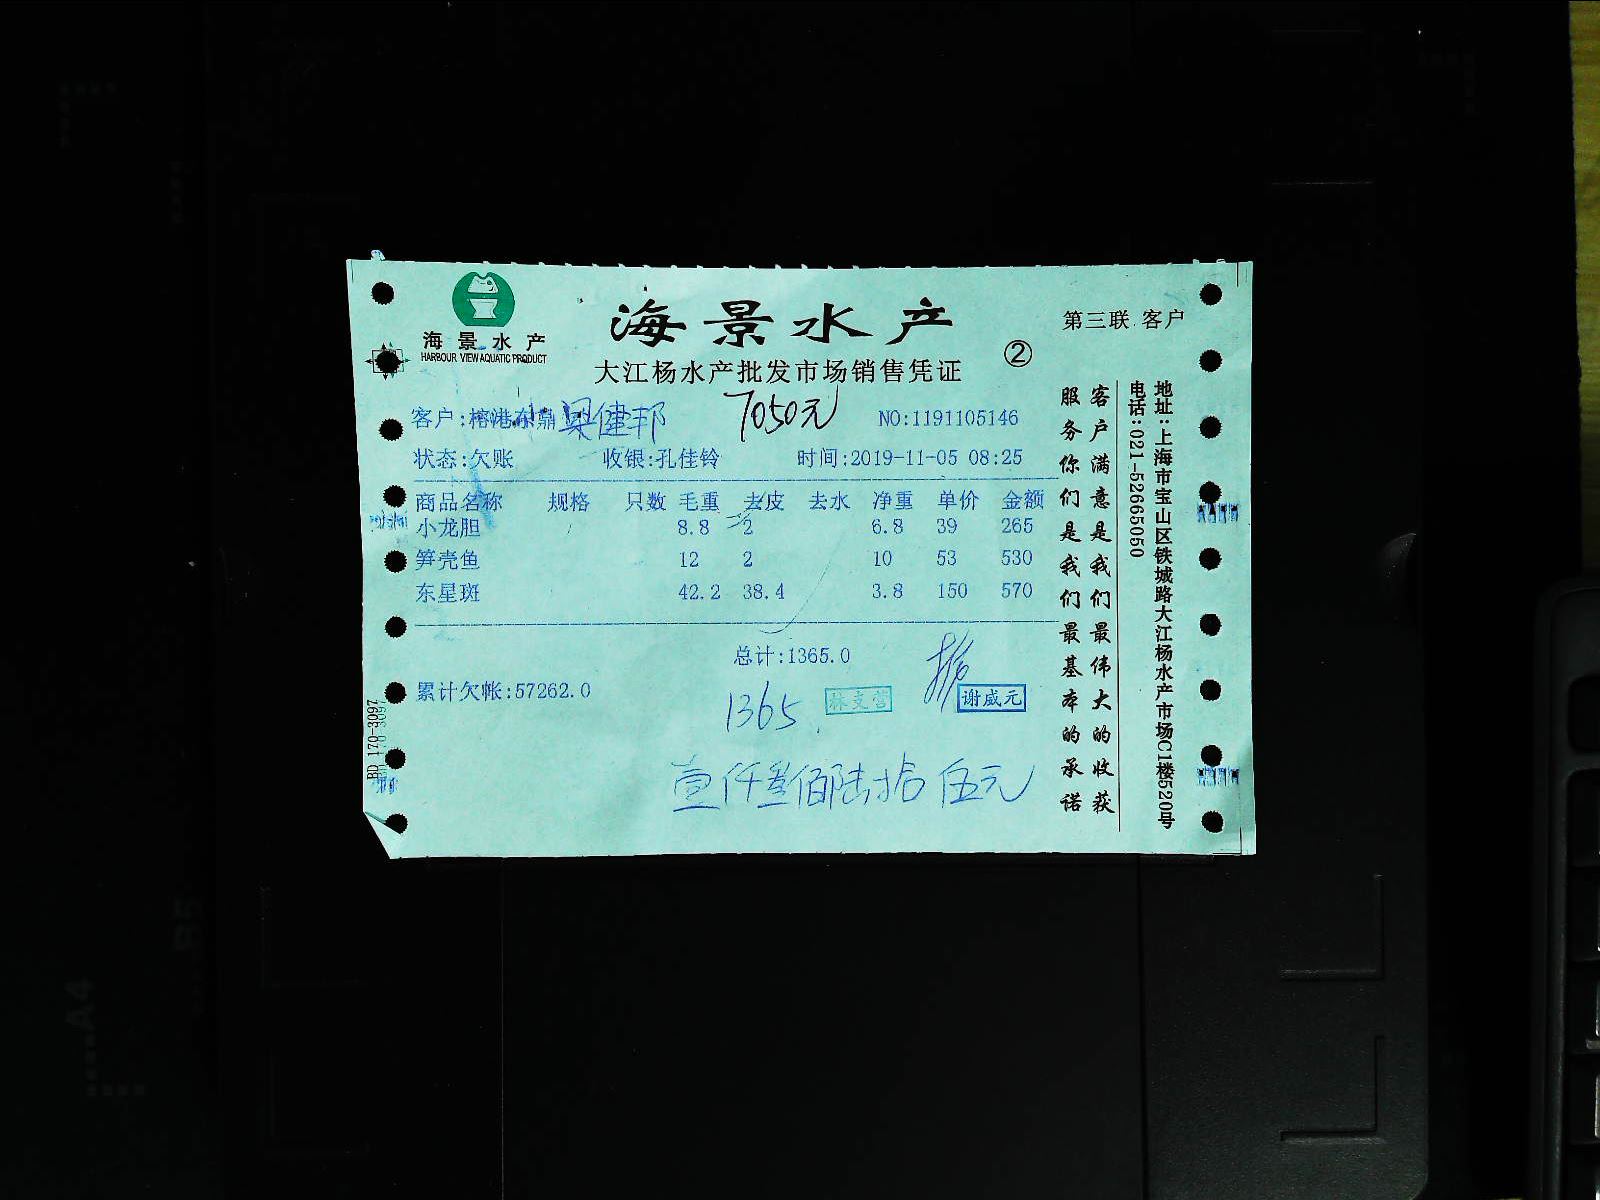 海景水产
HARBOUR VIEW AQUATIC PRODUCT
海景水产
大江杨水产批发市场销售凭证
②
第三联 客户
客户:榕港东鼎 梁健邦
7050元
NO:1191105146
状态:欠账 收银:孔佳铃 时间:2019-11-05 08:25
商品名称 规格 只数 毛重 去皮 去水 净重 单价 金额
小龙胆 8.8 2 6.8 39 265
笋壳鱼 12 2 10 53 530
东星斑 42.2 38.4 3.8 150 570
总计:1365.0
累计欠帐:57262.0
1365
谢威元
壹仟叁佰陆拾伍元
客户满意是我们最伟大的收获
服务你们是我们最基本的承诺
地址:上海市宝山区铁城路大江杨水产市场C1楼520号
电话:021-52665050
BD 178-3097
A4
B5